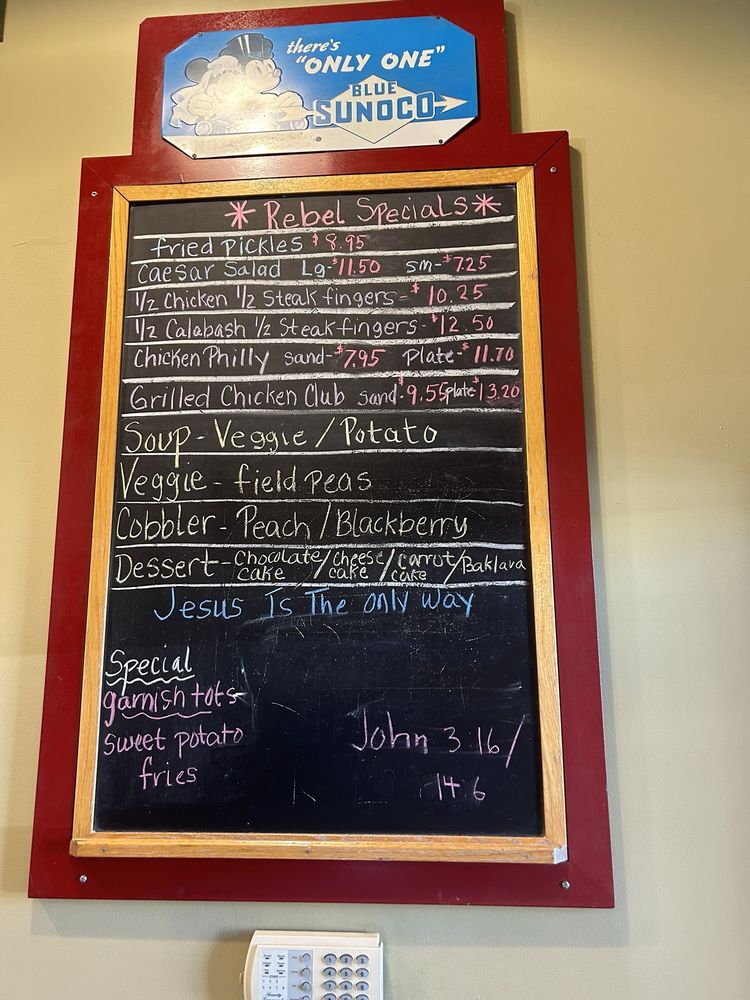 there's
"ONLY ONE"
BLUE
SUNOCO
* Rebel Specials *
fried pickles $8.95
Caesar Salad Lg-$11.50 sm-$7.25
1/2 Chicken 1/2 Steak fingers-$10.25
1/2 Calabash 1/2 Steak fingers-$12.50
Chicken Philly sand-$7.95 Plate-$11.70
Grilled Chicken Club sand-$9.55 plate-$13.20
Soup - Veggie / Potato
Veggie - field peas
Cobbler - Peach / Blackberry
Dessert - Chocolate cake / Cheese cake / Carrot cake / Baklava
Jesus Is The only way
Special
garnish tots
sweet potato
fries
John 3:16/
14:6